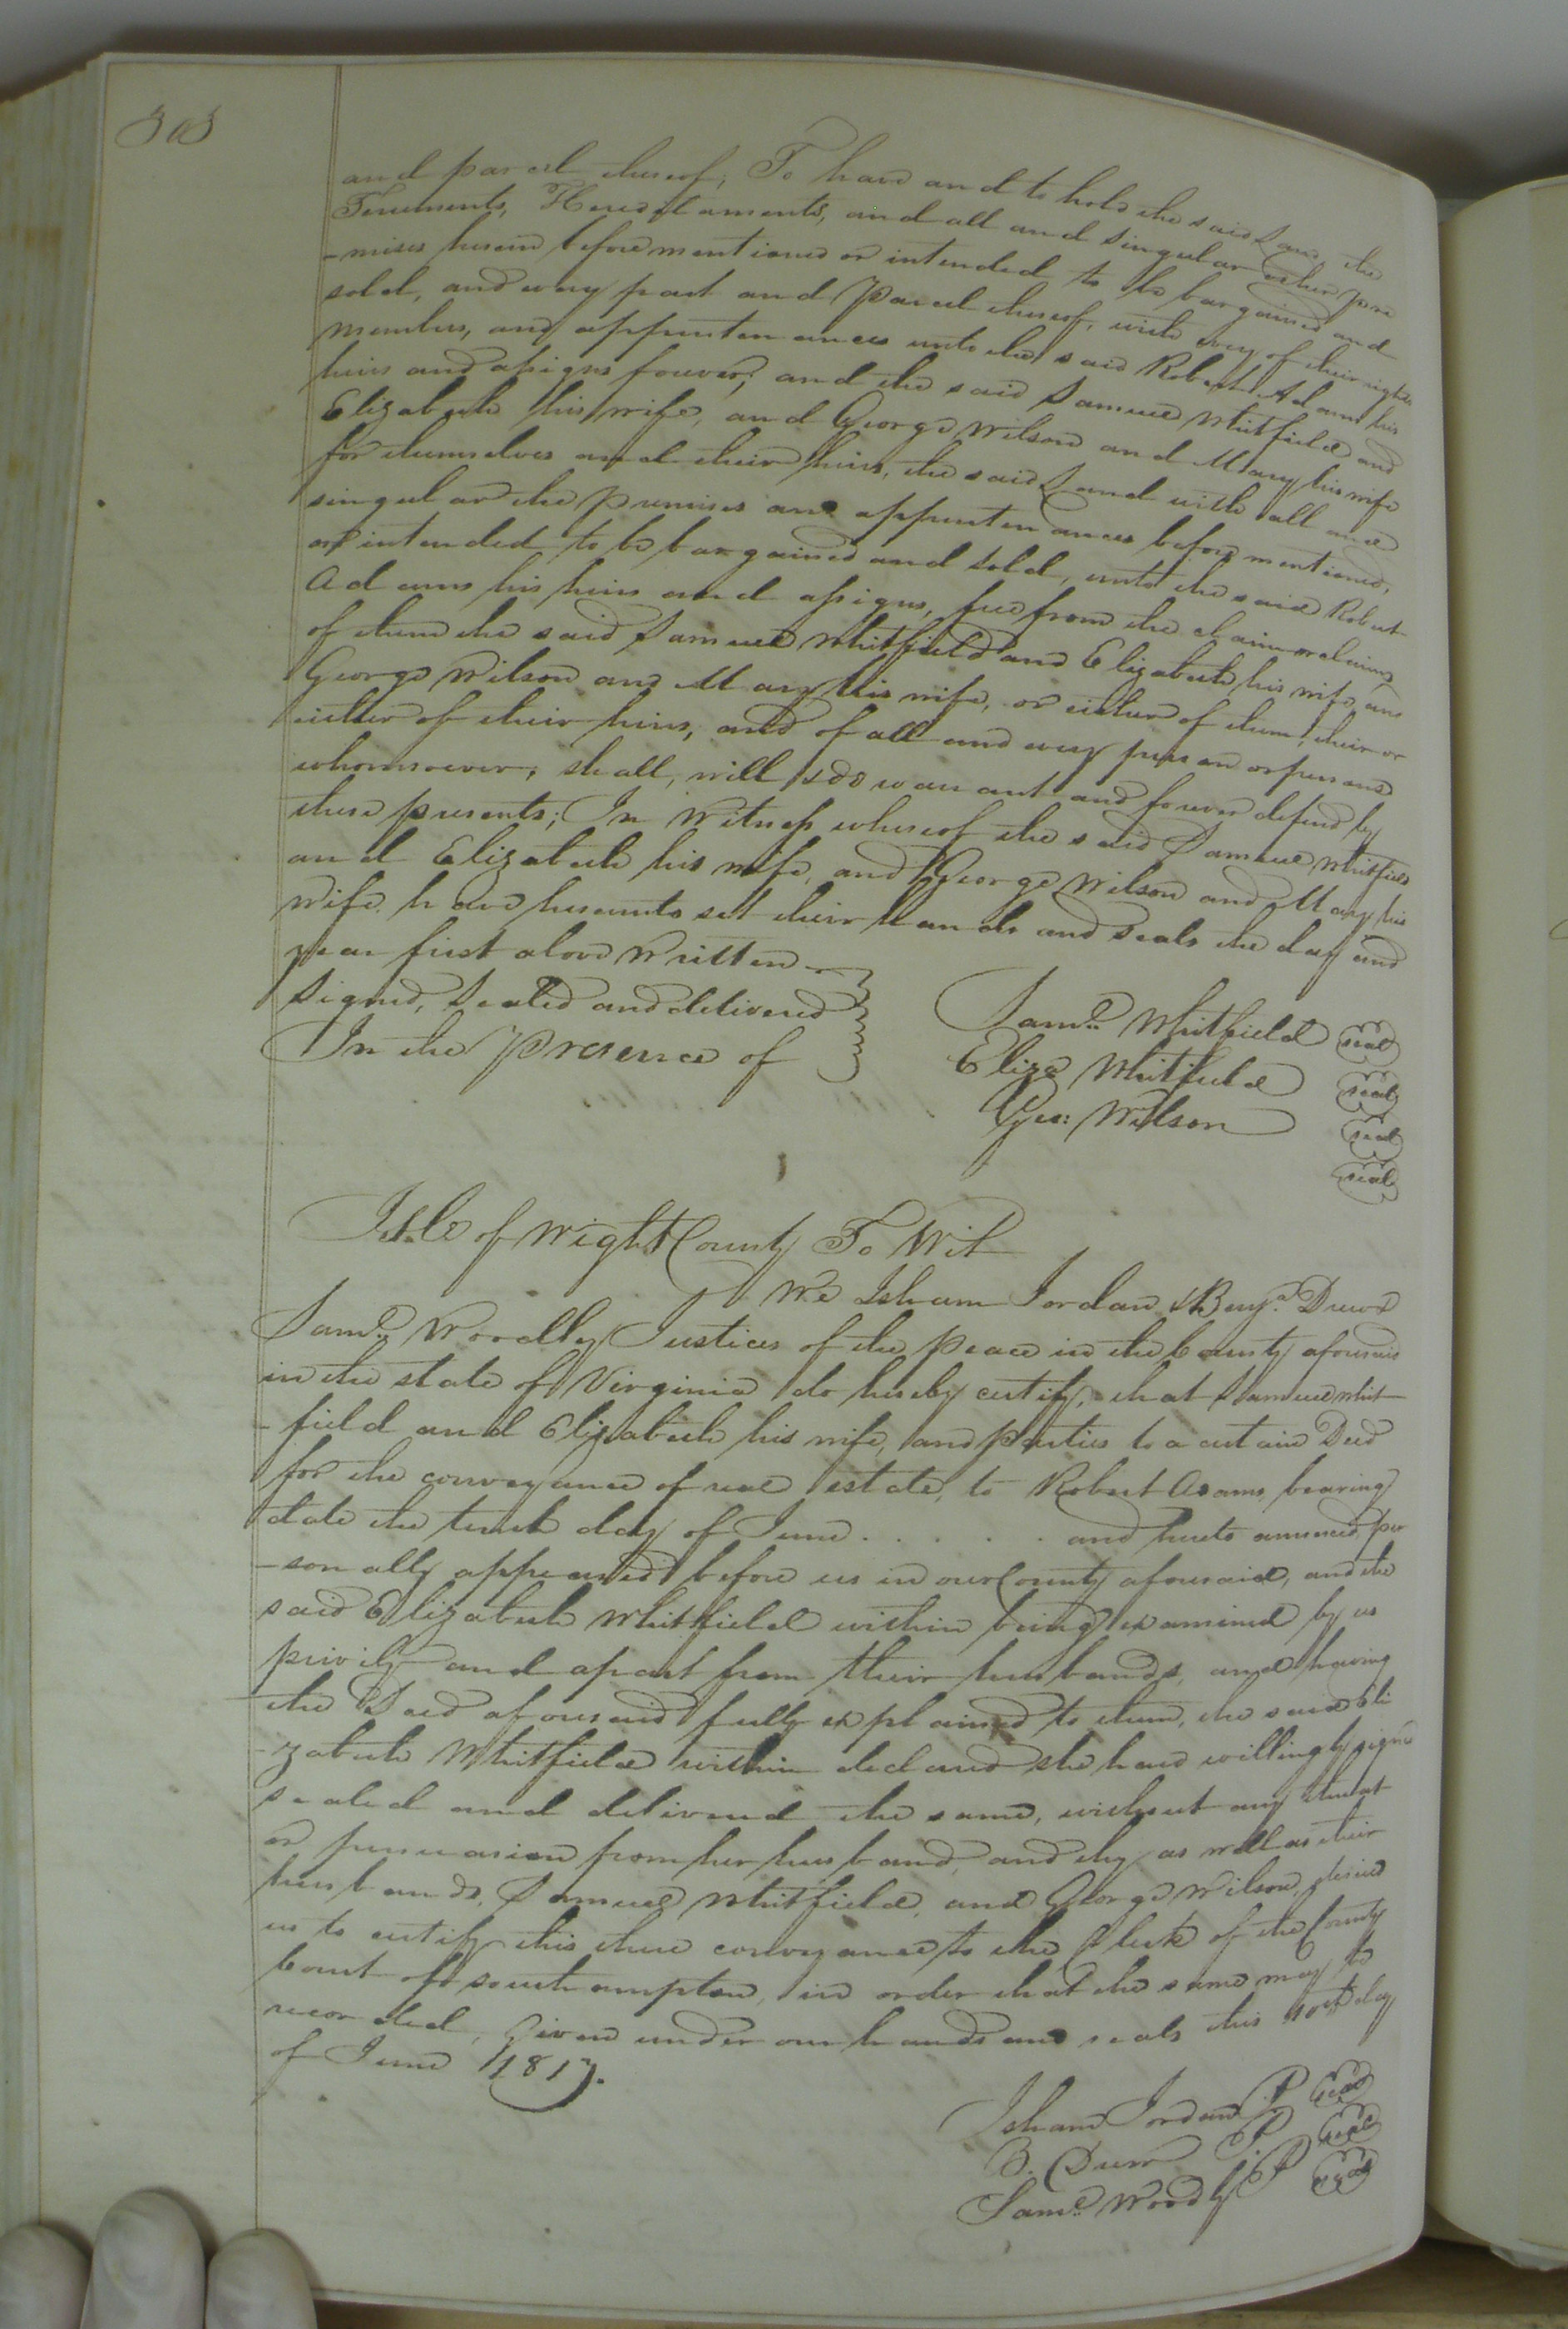 303
and parcel thereof; To have and to hold the said Land, the
Tenements, Hereditaments, and all and singular other pre
-mises herein before mentioned or intended to be bargained and
sold, and every part and Parcel thereof, with every of their rights
members, and appurtenances unto the said Robert Adams his
heirs and assigns forever; and the said Samuel Whitfield and
Elizabeth his wife, and George Wilson and Mary his wife
for themselves and their heirs, the said Land with all and
singular the premises and appurtenances before mentioned,
or intended to be bargained and sold, unto the said Robert
Adams his heirs and assigns, free from the claim or claims
of them the said Samuel Whitfield and Elizabeth his wife, and
George Wilson and Mary his wife, or either of them, their or
either of their heirs, and of all and every person or persons
whomsoever, shall, will & do warrant and forever defend by
these presents; In Witness whereof the said Samuel Whitfield
and Elizabeth his wife, and George Wilson and Mary his
wife have hereunto set their hands and seals the day and
year first above Written
Signed, Sealed and delivered
In the Presence of
Saml. Whitfield seal
Eliza Whitfield seal
Geo: Wilson seal
seal
Isle of Wight County To Wit
We Isham Jordan & Benja. Drew &
Saml. Woodley Justices of the peace in the County aforesaid
in the state of Virginia do hereby certify, that Samuel Whit
-field and Elizabeth his wife, and parties to a certain Deed
for the conveyance of real estate, to Robert Adams, bearing
date the tenth day of June . . . . . and hereto annexed, per
-sonally appeared before us in our County aforesaid, and the
said Elizabeth Whitfield within being examined by us
privily and apart from their husbands, and having
the Deed aforesaid fully explained to them, the said Eli
-zabeth Whitfield within declared she have willingly signed
sealed and delivered the same, without any threat
or persuasion from her husband, and they as well as their
husbands, Samuel Whitfield, and George Wilson, desired
us to certify this there conveyance to the Clerk of the County
Court of Southampton, in order that the same may be
recorded, Given under our hands and seals this 10th day
of June 1817.
Isham Jordan J.P seal
B. Drew J.P seal
Saml. Woodley J.P seal